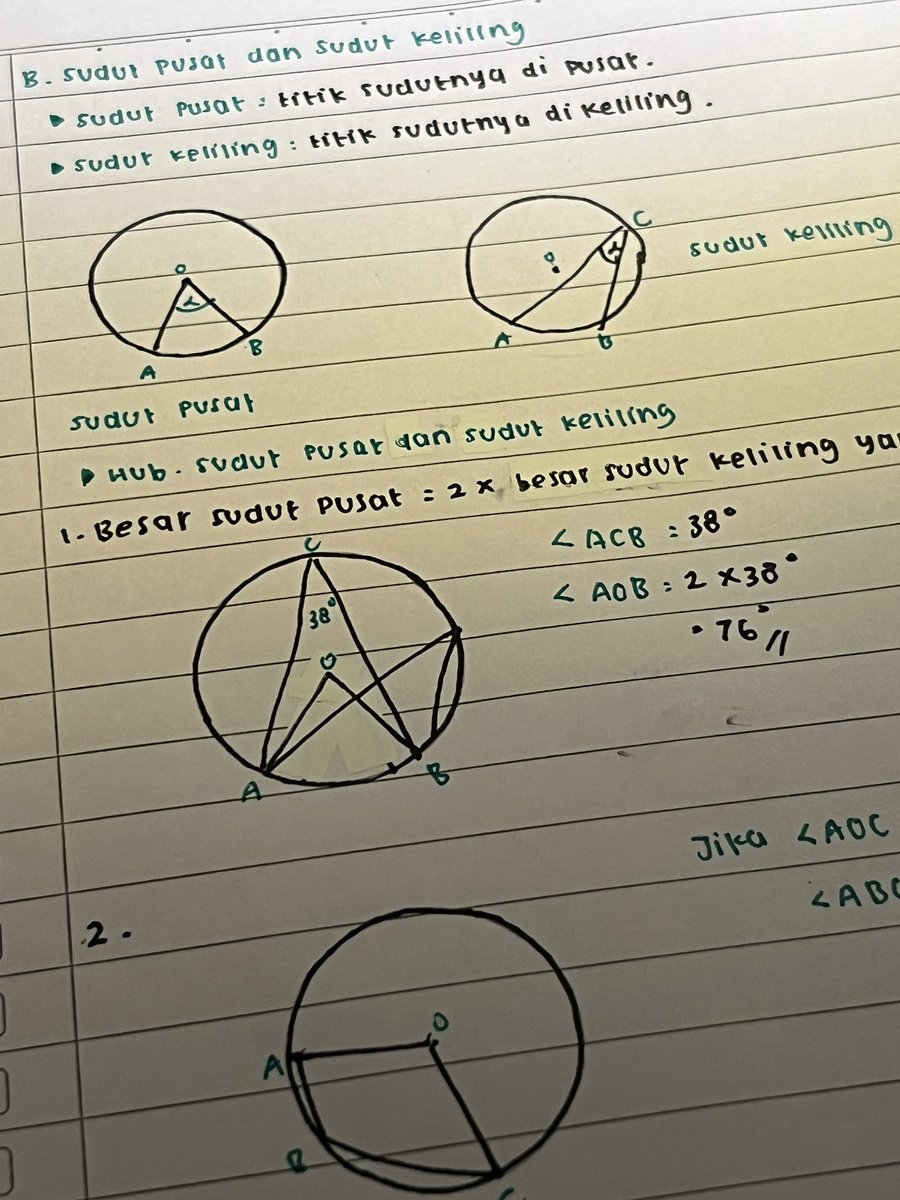 B. Sudut pusat dan sudut keliling
▸ sudut pusat : titik sudutnya di pusat.
▸ sudut keliling : titik sudutnya di keliling.
O
α
A
B
sudut pusat
O
C
α
A
B
sudut keliling
▸ Hub. sudut pusat dan sudut keliling
1. Besar sudut pusat = 2 x besar sudut keliling
C
38°
O
A
B
< ACB = 38°
< AOB = 2 x 38°
= 76° //
2.
Jika <AOC
O
A
B